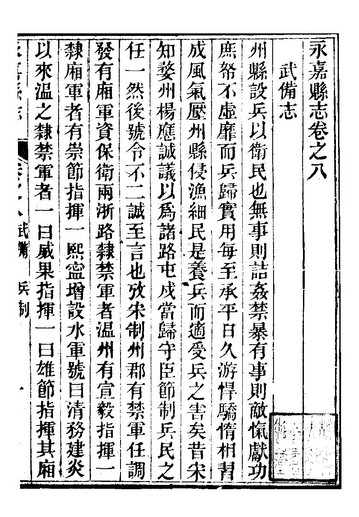 永嘉縣志卷之八
武備志
州縣設兵以衛民也無事則詰姦禁暴有事則敵愾獻功
庶帑不虛靡而兵歸實用每至承平日久游悍驕惰相習
成風氣壓州縣侵漁細民是養兵而適受兵之害矣昔宋
知婺州楊應誠議以爲諸路屯戍當歸守臣節制兵民之
任一然後號令不二誠至言也攷宋制州郡有禁軍任調
發有廂軍資保衛兩浙路隸禁軍者溫州有宣毅指揮一
隸廂軍者有崇節指揮一熙寧增設水軍號曰清務建炎
以來溫之隸禁軍者一曰威果指揮一曰雄節指揮其廂
卷之八 武備 兵制 一